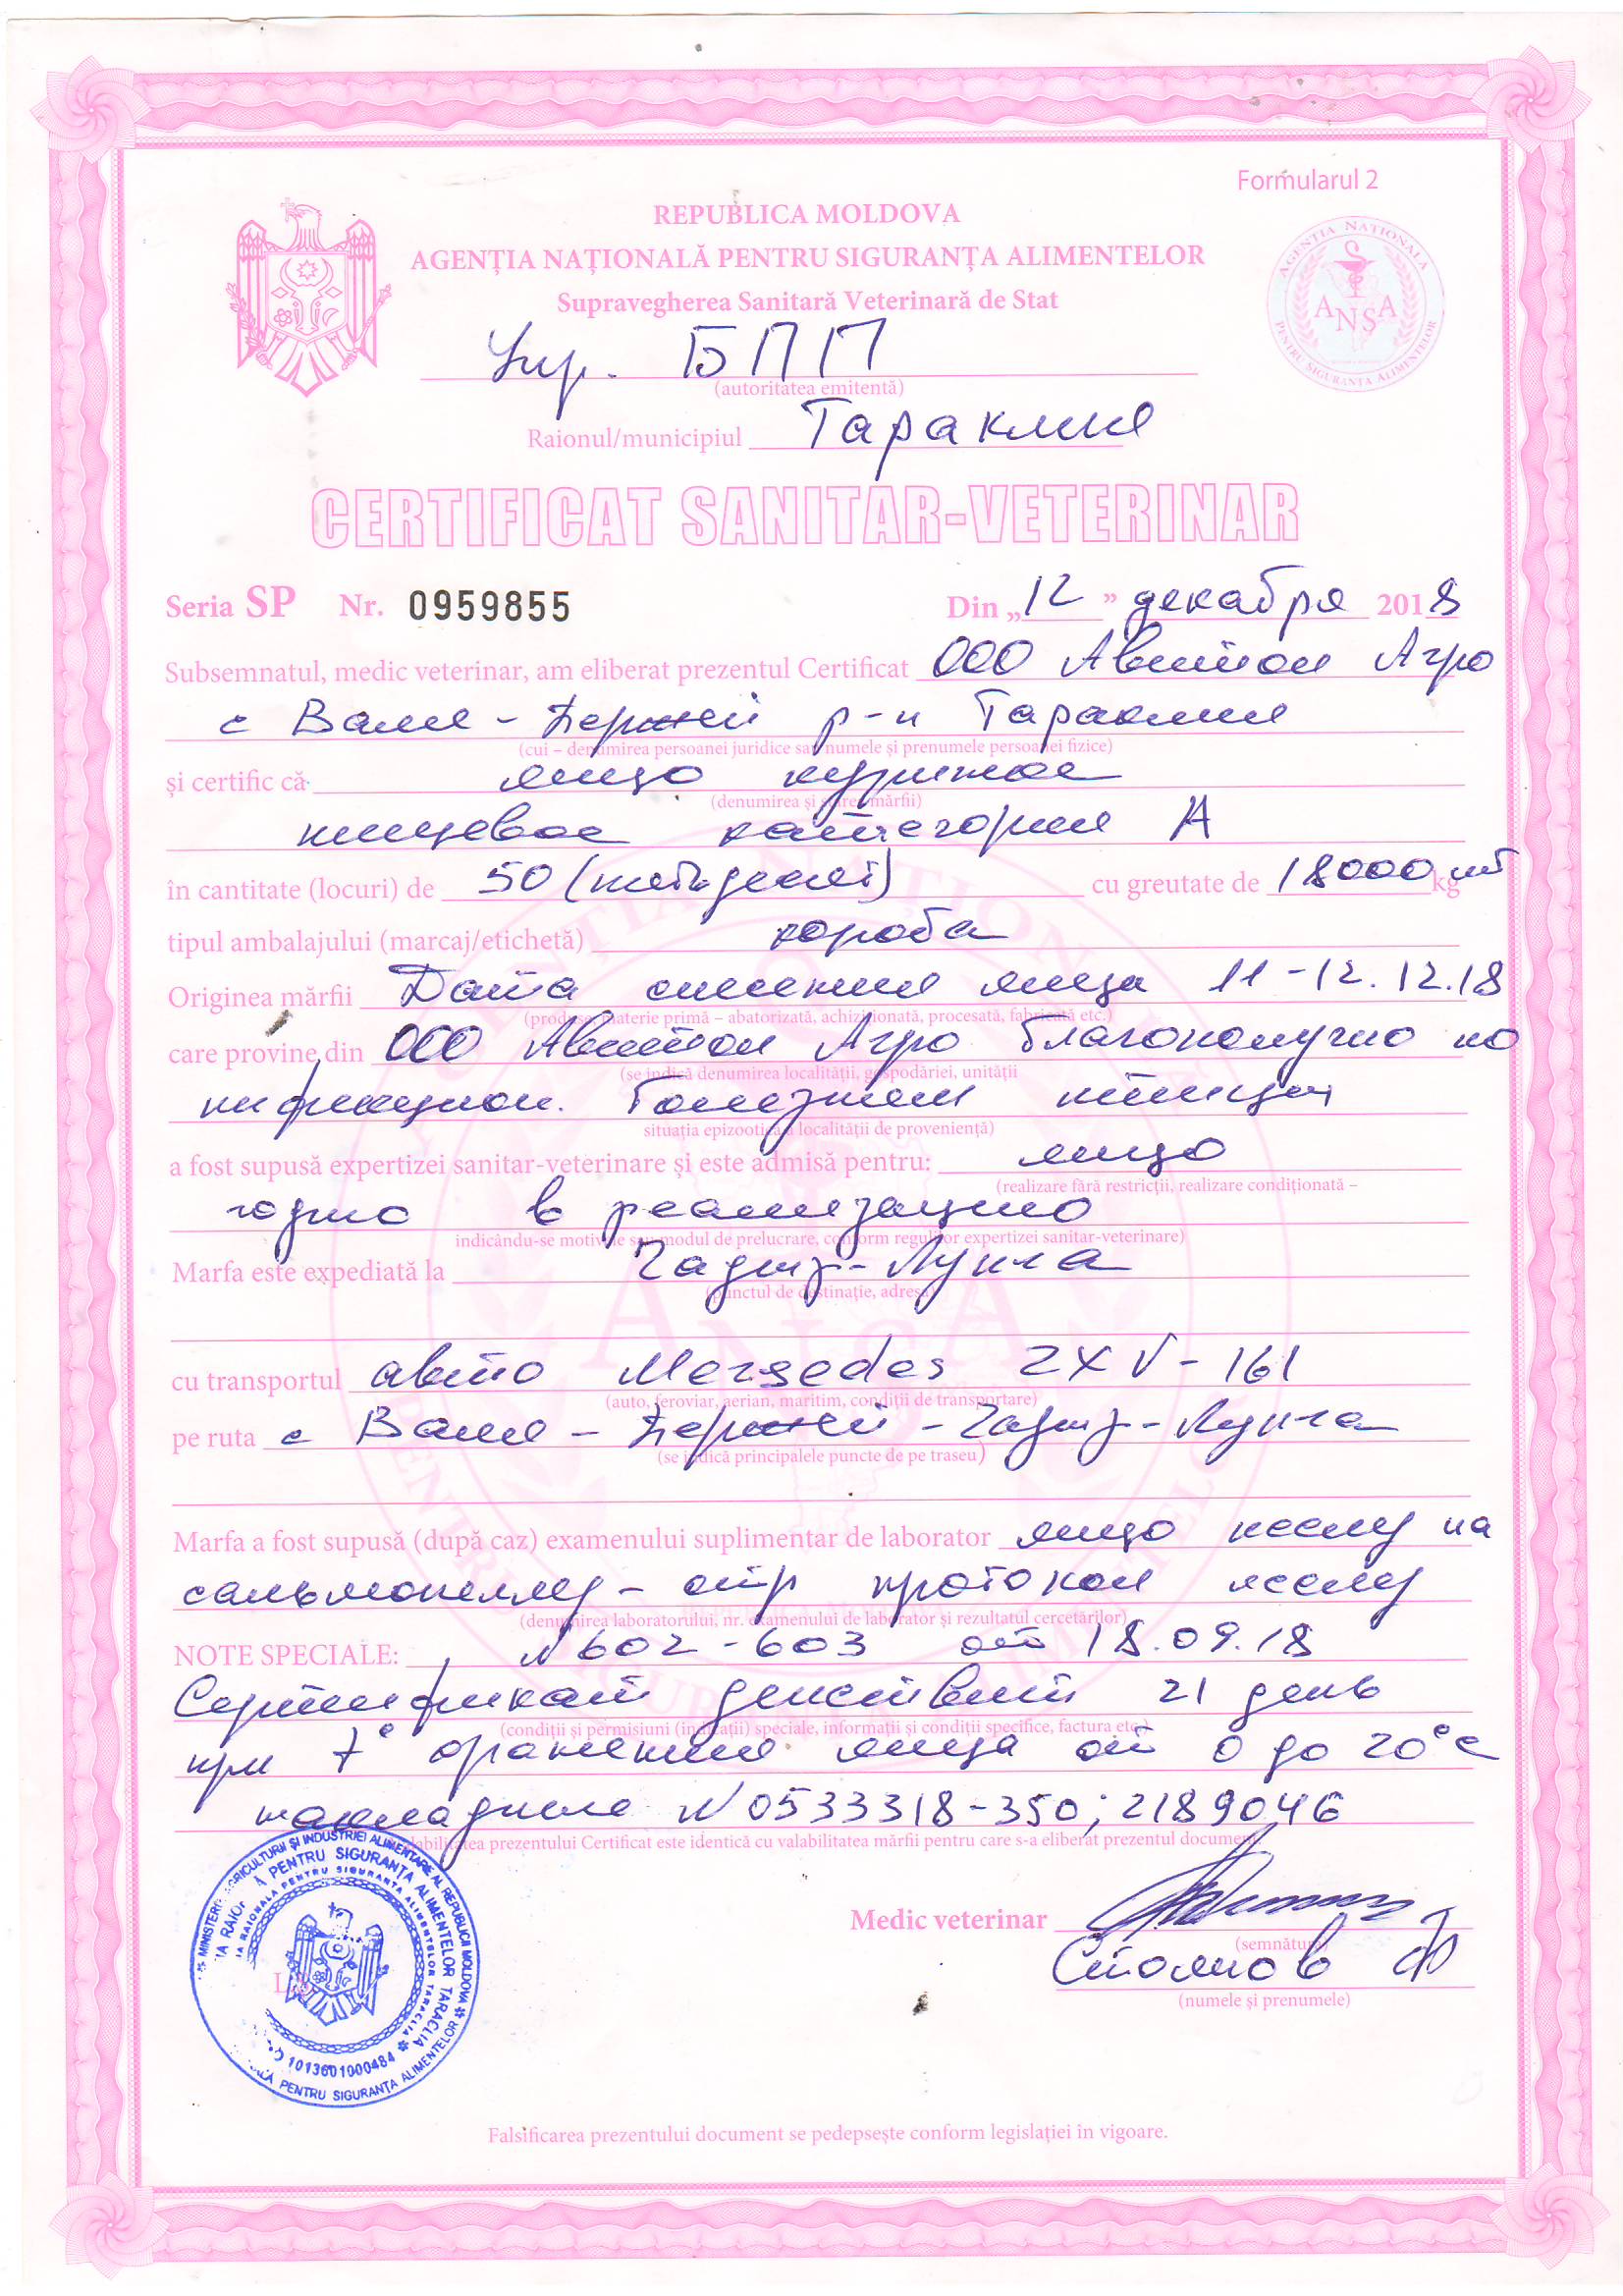 Formularul 2
REPUBLICA MOLDOVA
AGENȚIA NAȚIONALĂ PENTRU SIGURANȚA ALIMENTELOR
Supravegherea Sanitară Veterinară de Stat
AGENȚIA NAȚIONALĂ PENTRU SIGURANȚA ALIMENTELOR
ANSA
Упр. БПП
(autoritatea emitentă)
Raionul/municipiul Тараклия
CERTIFICAT SANITAR-VETERINAR
Seria SP Nr. 0959855 Din „12” декабря 2018
Subsemnatul, medic veterinar, am eliberat prezentul Certificat ООО Авитон Агро
с Валя-Пержей р-н Тараклия
(cui – denumirea persoanei juridice sau numele și prenumele persoanei fizice)
și certific că яйцо куриное
(denumirea și starea mărfii)
пищевое категории А
în cantitate (locuri) de 50 (пятьдесят) cu greutate de 18000 шт kg
tipul ambalajului (marcaj/etichetă) короба
Originea mărfii Дата снесения яйца 11-12.12.18
(produse, materie primă – abatorizată, achiziționată, procesată, fabricată etc.)
care provine din ООО Авитон Агро благополучно по
(se indică denumirea localității, gospodăriei, unității
инфекцион. болезням птицы
situația epizootică a localității de proveniență)
a fost supusă expertizei sanitar-veterinare și este admisă pentru: яйцо
(realizare fără restricții, realizare condiționată –
годно в реализацию
indicându-se motivele sau modul de prelucrare, conform regulilor expertizei sanitar-veterinare)
Marfa este expediată la Чадыр-Лунга
(punctul de destinație, adresa)
cu transportul авто Mersedes ZXV-161
(auto, feroviar, aerian, maritim, condiții de transportare)
pe ruta с Валя-Пержей-Чадыр-Лунга
(se indică principalele puncte de pe traseu)
Marfa a fost supusă (după caz) examenului suplimentar de laborator яйцо исслед на
сальмонеллед - отр протокол исслед
(denumirea laboratorului, nr. examenului de laborator și rezultatul cercetărilor)
NOTE SPECIALE: N 602-603 от 18.09.18
Сертификат действит 21 день
(condiții și permisiuni (indicații) speciale, informații și condiții specifice, factura etc.)
при t° хранения яйца от 0 до 20°с
накладные N 0533318-350; 2189046
Valabilitatea prezentului Certificat este identică cu valabilitatea mărfii pentru care s-a eliberat prezentul document
Medic veterinar
(semnătura)
Стоянов Ф
(numele și prenumele)
L.Ș.
MINISTERUL AGRICULTURII ȘI INDUSTRIEI ALIMENTARE AL REPUBLICII MOLDOVA
PENTRU SIGURANȚA ALIMENTELOR TARACLIA
1013601000484
PENTRU SIGURANȚA ALIMENTELOR
Falsificarea prezentului document se pedepsește conform legislației în vigoare.